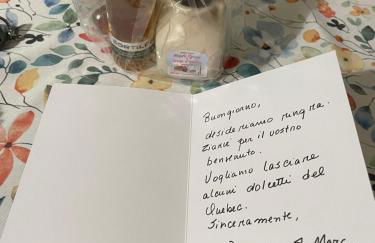 SORTILÈGE
Buongiorno,
desideriamo ringra.
ziarvi per il vostro
benvenuto.
Vogliamo lasciare
alcuni dolcetti del
Quebec.
Sinceramente,
Marc